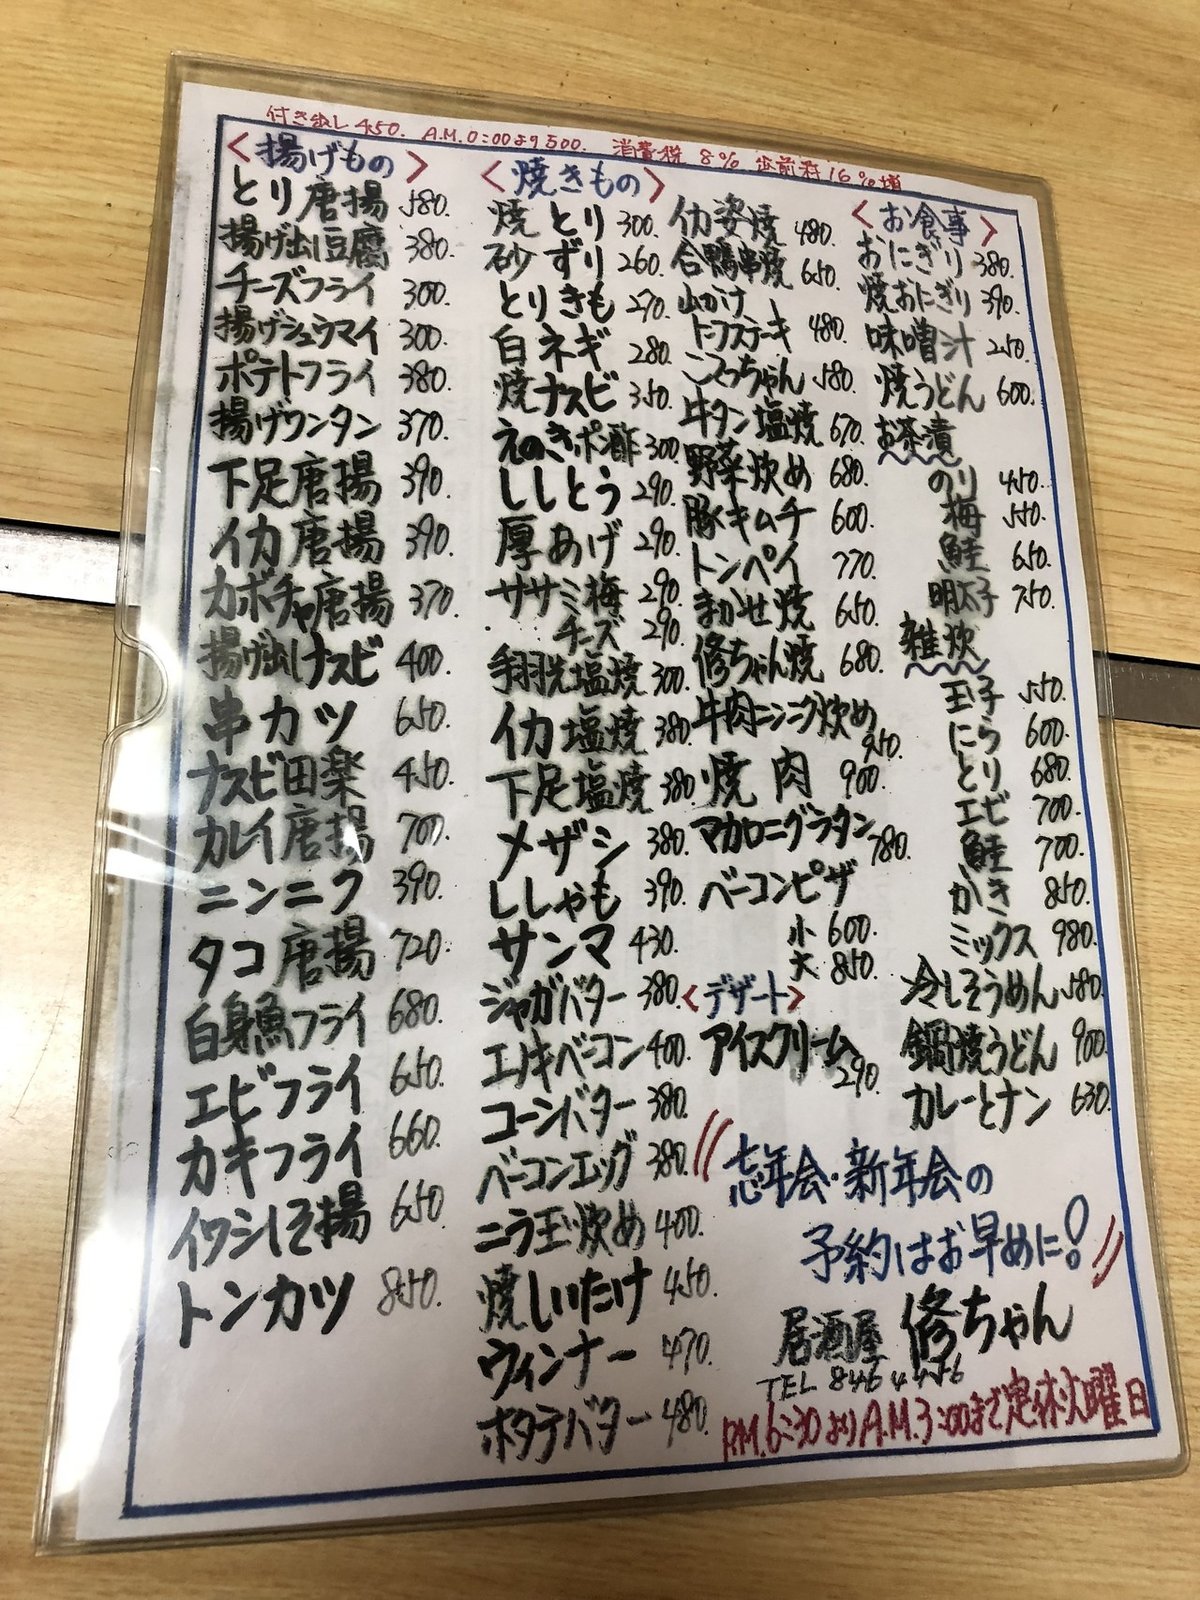 付き出し 450. A.M.0:00より500. 消費税 8% 午前 16%増
<揚げもの>
とり唐揚 580.
揚げ出し豆腐 380.
チーズフライ 300.
揚げシュウマイ 300.
ポテトフライ 380.
揚げワンタン 370.
下足唐揚 390.
イカ唐揚 390.
カボチャ唐揚 370.
揚げ出しナスビ 400.
串カツ 650.
ナスビ田楽 450.
カレイ唐揚 700.
ニンニク 390.
タコ唐揚 720.
白身魚フライ 680.
エビフライ 650.
カキフライ 660.
イワシしそ揚 650.
トンカツ 850.
<焼きもの>
焼とり 300.
砂ずり 260.
とりきも 270.
白ネギ 280.
焼ナスビ 350.
えのきポン酢 300.
ししとう 290.
厚あげ 290.
ササミ梅 290.
チーズ 290.
手羽先塩焼 300.
イカ塩焼 380.
下足塩焼 380.
メザシ 380.
ししゃも 390.
サンマ 430.
ジャガバター 380.
エノキベーコン 400.
コーンバター 380.
ベーコンエッグ 380.
ニラ玉炒め 400.
焼しいたけ 450.
ウィンナー 470.
ホタテバター 480.
イカ姿焼 480.
合鴨串焼 650.
山かけ
トーフステーキ 480.
こてっちゃん 580.
牛タン塩焼 670.
野菜炒め 680.
豚キムチ 600.
トンペイ 770.
まかせ焼 650.
修ちゃん焼 680.
牛肉ニンニク炒め
950.
焼肉 900.
マカロニグラタン
780.
ベーコンピザ
小 600.
大 850.
<デザート>
アイスクリーム
290.
<お食事>
おにぎり 380.
焼おにぎり 390.
味噌汁 250.
焼うどん 600.
お茶漬
のり 450.
梅 550.
鮭 650.
明太子 750.
雑炊
玉子 550.
にら 600.
とり 680.
エビ 700.
鮭 700.
かき 850.
ミックス 980.
冷しそうめん 580.
鍋焼うどん 900.
カレーとナン 630.
忘年会・新年会の
予約はお早めに!
居酒屋 修ちゃん
TEL 846 4456
P.M.6:30よりA.M.3:00まで定休火曜日